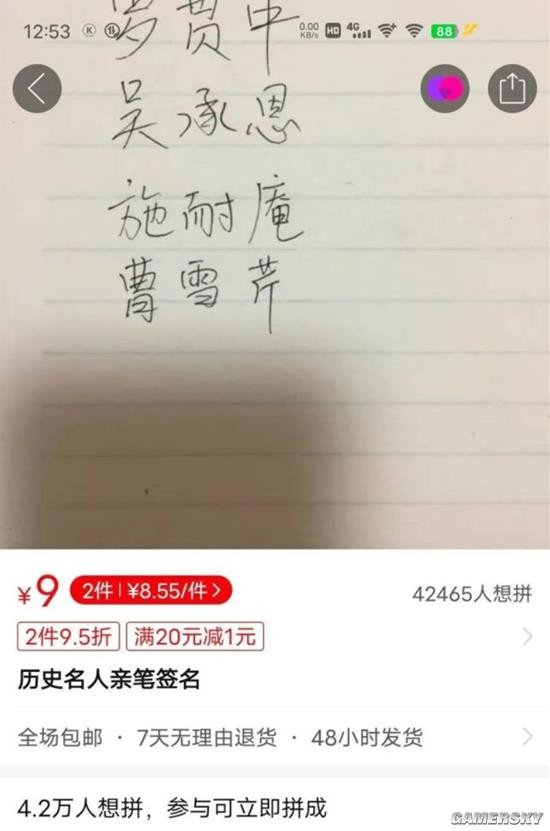 12:53 K 0.00 KB/s HD 4G 88
罗贯中
吴承恩
施耐庵
曹雪芹
¥9 2件 | ¥8.55/件 > 42465人想拼
2件9.5折 满20元减1元
历史名人亲笔签名
全场包邮 · 7天无理由退货 · 48小时发货
4.2万人想拼，参与可立即拼成
GAMERSKY